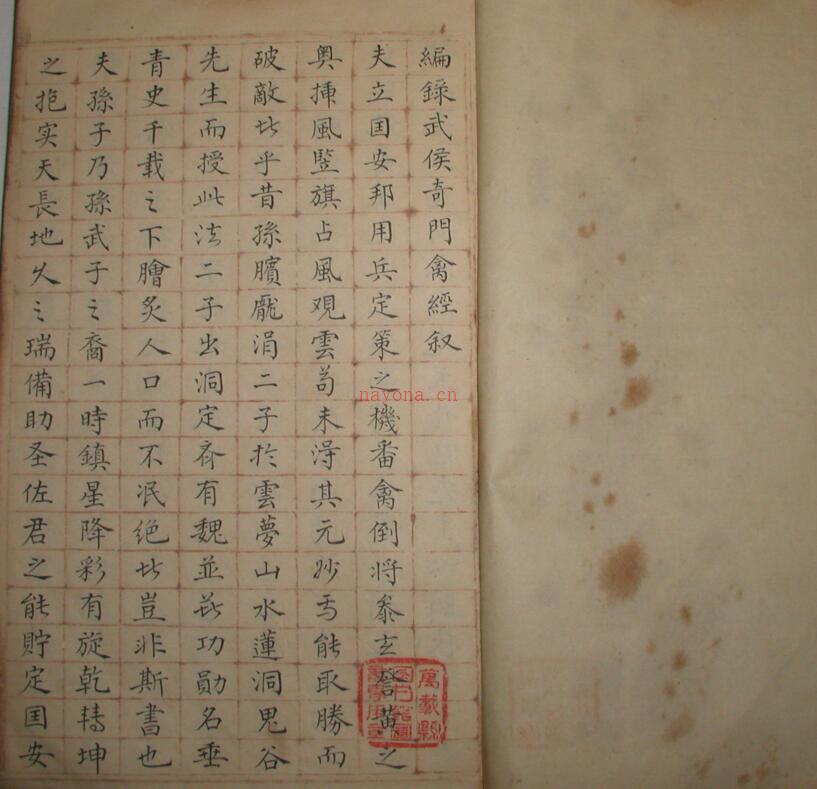 編錄武侯奇門禽經叙
夫立囯安邦用兵定策之機番禽倒将叅玄之
奥揷風竪旗占風观雲苟未淂其元妙焉能取勝而
破敵此乎昔孫臏龎涓二子扵雲夢山水蓮洞鬼谷
先生而授此法二子出洞定斉有魏並功勛名垂
青史千载之下膾炙人口而不泯绝此豈非斯書也
夫孫子乃孫武子之裔一時鎮星降彩有旋乾轉坤
之抱实天長地久之瑞備助圣佐君之能貯定囯安
萬載縣
nayona.cn